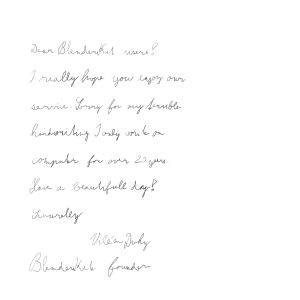 Dear BlenderKit users!
I really hope you enjoy our
service. Sorry for my terrible
handwriting I only work on
computer for over 20 years.
Have a beautifull day!
Sincerelly
Vilém Duha
BlenderKit founder